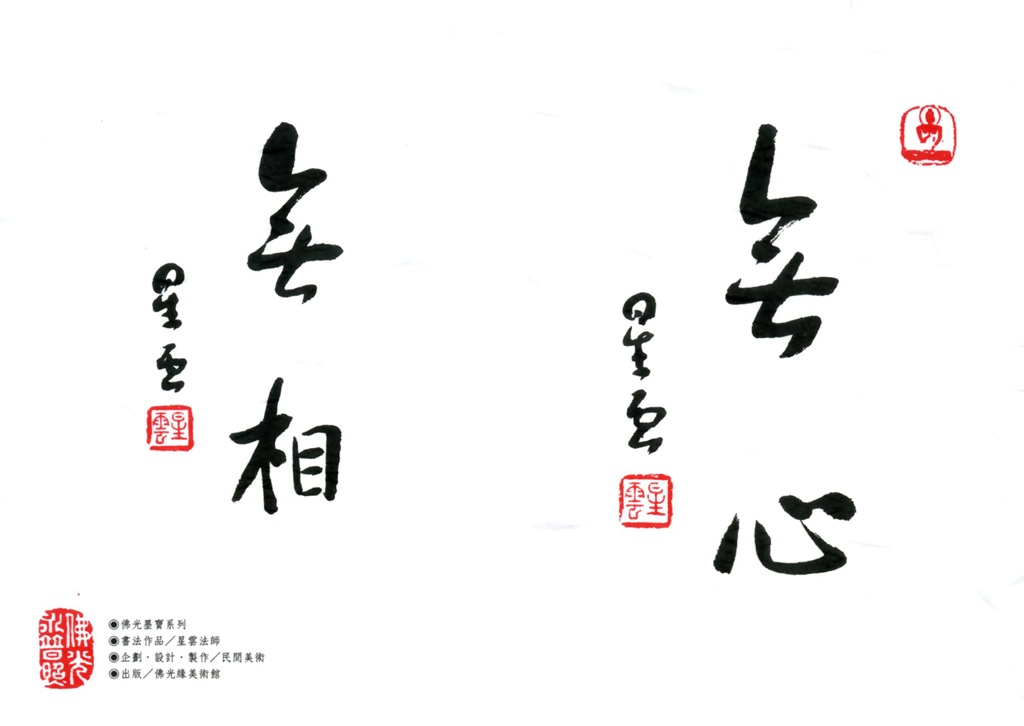 無心
星雲
星雲
無相
星雲
星雲
佛光永普照
◉佛光墨寶系列
◉書法作品／星雲法師
◉企劃‧設計‧製作／民間美術
◉出版／佛光緣美術館